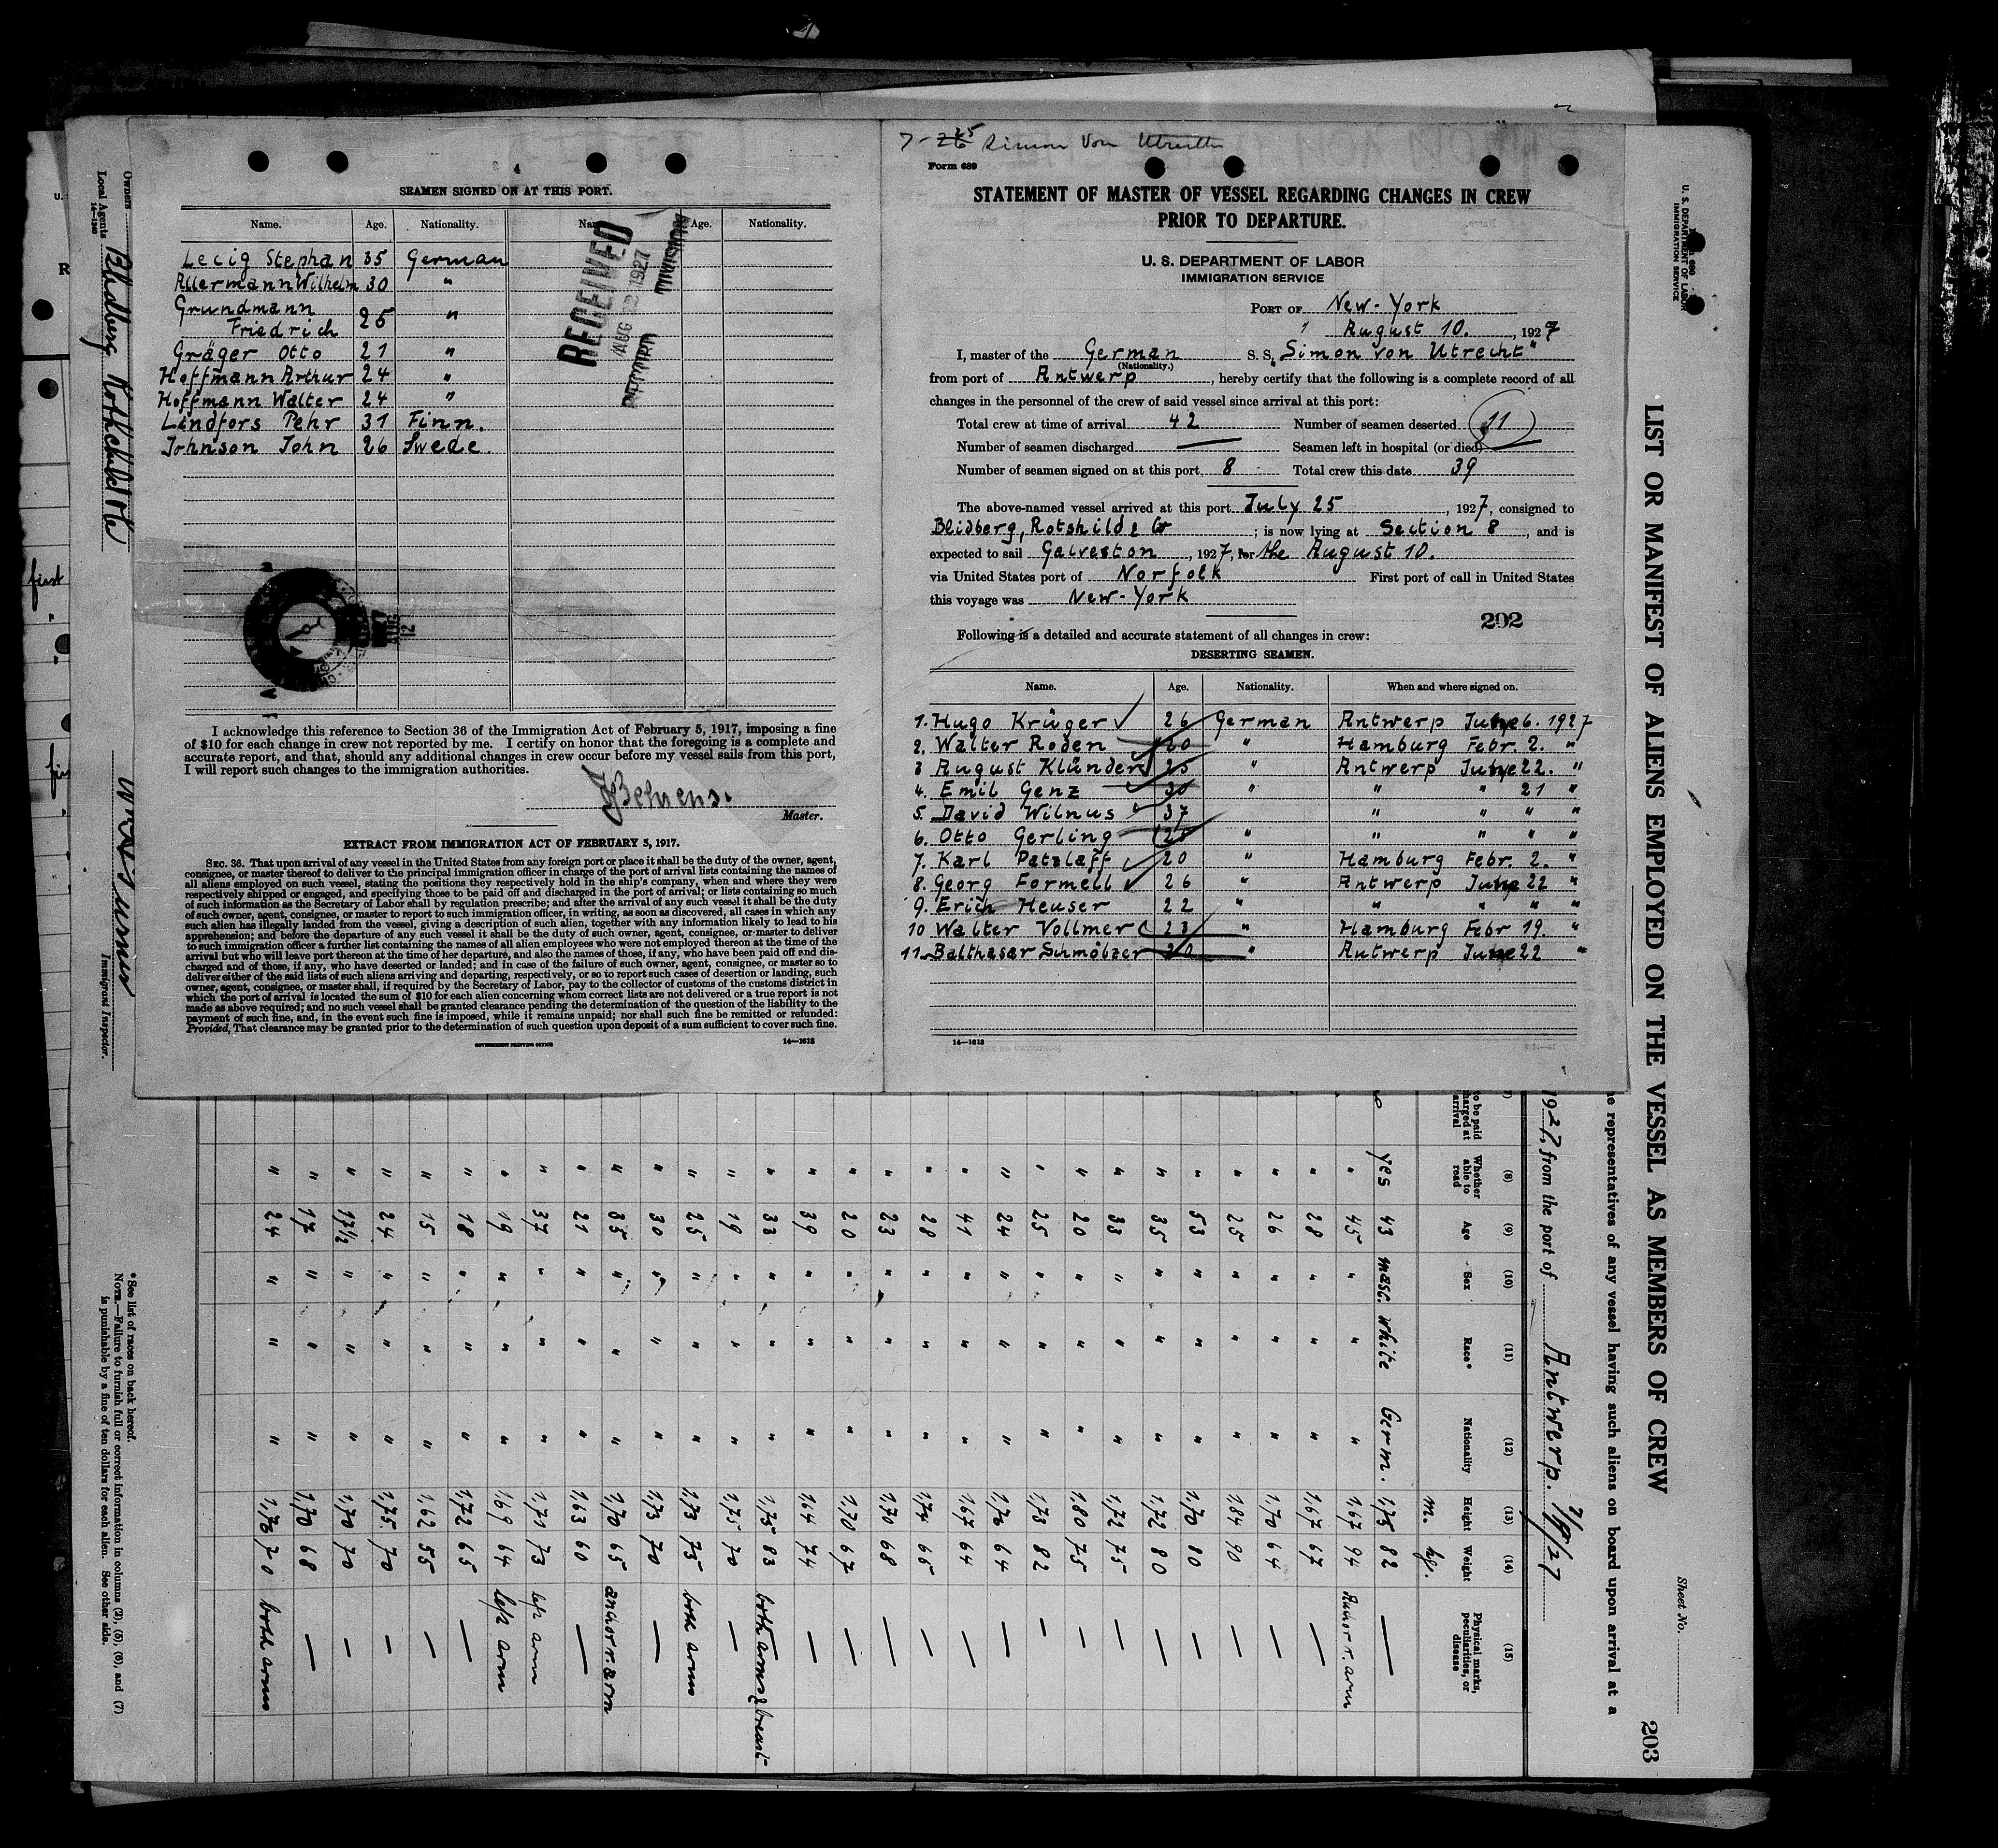 4
SEAMEN SIGNED ON AT THIS PORT.
Name. Age. Nationality. Name. Age. Nationality.
Lecig Stephan 35 German
Allermann Wilhelm 30 "
Grundmann
Friedrich 25 "
Gräger Otto 21 "
Hoffmann Arthur 24 "
Hoffmann Walter 24 "
Lindfors Pehr 31 Finn.
Johnson John 26 Swede.
RECEIVED
AUG 22 1927
DIVISION
I acknowledge this reference to Section 36 of the Immigration Act of February 5, 1917, imposing a fine
of $10 for each change in crew not reported by me. I certify on honor that the foregoing is a complete and
accurate report, and that, should any additional changes in crew occur before my vessel sails from this port,
I will report such changes to the immigration authorities.
Behrens.
Master.
EXTRACT FROM IMMIGRATION ACT OF FEBRUARY 5, 1917.
SEC. 36. That upon arrival of any vessel in the United States from any foreign port or place it shall be the duty of the owner, agent,
consignee, or master thereof to deliver to the principal immigration officer in charge of the port of arrival lists containing the names of
all aliens employed on such vessel, stating the positions they respectively hold in the ship's company, when and where they were
respectively shipped or engaged, and specifying those to be paid off and discharged in the port of arrival; or lists containing so much
of such information as the Secretary of Labor shall by regulation prescribe; and after the arrival of any such vessel it shall be the duty
of such owner, agent, consignee, or master to report to such immigration officer, in writing, as soon as discovered, all cases in which any
such alien has illegally landed from the vessel, giving a description of such alien, together with any information likely to lead to his
apprehension; and before the departure of any such vessel it shall be the duty of such owner, agent, consignee, or master to deliver
to such immigration officer a further list containing the names of all alien employees who were not employed thereon at the time of the
arrival but who will leave port thereon at the time of her departure, and also the names of those, if any, who have been paid off and dis-
charged and of those, if any, who have deserted or landed; and in case of the failure of such owner, agent, consignee, or master so to
deliver either of the said lists of such aliens arriving and departing, respectively, or so to report such cases of desertion or landing, such
owner, agent, consignee, or master shall, if required by the Secretary of Labor, pay to the collector of customs of the customs district in
which the port of arrival is located the sum of $10 for each alien concerning whom correct lists are not delivered or a true report is not
made as above required; and no such vessel shall be granted clearance pending the determination of the question of the liability to the
payment of such fine, and, in the event such fine is imposed, while it remains unpaid; nor shall such fine be remitted or refunded:
Provided, That clearance may be granted prior to the determination of such question upon deposit of a sum sufficient to cover such fine.
GOVERNMENT PRINTING OFFICE 14—1613
7-26 25 Simon Von Utrecht
Form 689
STATEMENT OF MASTER OF VESSEL REGARDING CHANGES IN CREW
PRIOR TO DEPARTURE.
U. S. DEPARTMENT OF LABOR
IMMIGRATION SERVICE
PORT OF New-York
August 10., 1927
I, master of the German S. S. "Simon von Utrecht"
(Nationality.)
from port of Antwerp, hereby certify that the following is a complete record of all
changes in the personnel of the crew of said vessel since arrival at this port:
Total crew at time of arrival 42 Number of seamen deserted 11
Number of seamen discharged — Seamen left in hospital (or died) —
Number of seamen signed on at this port. 8 Total crew this date 39
The above-named vessel arrived at this port July 25, 1927, consigned to
Blidberg, Rotshild & Co; is now lying at Section 8, and is
expected to sail Galveston, 1927, for the August 10.
via United States port of Norfolk First port of call in United States
this voyage was New-York
202
Following is a detailed and accurate statement of all changes in crew:
DESERTING SEAMEN.
Name. Age. Nationality. When and where signed on.
1. Hugo Krüger 26 German Antwerp June 6. 1927
2. Walter Roden 20 " Hamburg Febr. 2. "
3 August Klünder 25 " Antwerp June 22. "
4. Emil Genz 30 " " " 21 "
5. David Wilnus 37 " " " "
6. Otto Gerling 28 " " " " "
7. Karl Patzlaff 20 " Hamburg Febr. 2. "
8. Georg Formell 26 " Antwerp June 22 "
9. Erich Heuser 22 " " " " "
10 Walter Vollmer 23 " Hamburg Febr 19. "
11. Balthasar Schmölzer 20 " Antwerp June 22 "
14—1613
Owners
Local Agents Blidberg Rothchild & Co
14—1240
Immigrant Inspector.
U. S. DEPARTMENT OF LABOR
IMMIGRATION SERVICE
LIST OR MANIFEST OF ALIENS EMPLOYED ON THE VESSEL AS MEMBERS OF CREW
Sheet No.
203
representatives of any vessel having such aliens on board upon arrival at a
1927, from the port of Antwerp.
to be paid
arrival
(8) Whether able to read
(9) Age
(10) Sex
(11) Race*
(12) Nationality
(13) Height
(14) Weight
(15) Physical marks, peculiarities, or disease
m. kg.
yes 43 masc. white Germ. 1,75 82 —
" 45 " " " 1,67 94 Anchor r. arm
" 28 " " " 1,67 67 —
" 26 " " " 1,70 64 —
" 25 " " " 1,84 90 —
" 53 " " " 1,70 80 —
" 35 " " " 1,72 80 —
" 33 " " " 1,72 75 —
" 20 " " " 1,80 75 —
" 25 " " " 1,73 82 —
" 24 " " " 1,70 64 —
" 41 " " " 1,67 64 —
" 28 " " " 1,74 65 —
" 23 " " " 1,70 68 —
" 20 " " " 1,70 67 —
" 39 " " " 1,64 74 —
" 33 " " " 1,75 83 both arms & breast
" 19 " " " 1,75 70 —
" 25 " " " 1,73 75 both arms
" 30 " " " 1,73 70 —
" 35 " " " 1,70 65 anchor r. arm
" 21 " " " 1,63 60 —
" 37 " " " 1,70 73 left arm
" 19 " " " 1,69 64 left arm
" 18 " " " 1,72 65 —
" 15 " " " 1,62 55 —
" 24 " " " 1,75 70 —
" 17½ " " " 1,70 70 —
" 17 " " " 1,70 68 —
" 24 " " " 1,70 70 both arms
*See list of races on back hereof.
NOTE.—Failure to furnish full or correct information in columns (2), (5), (6), and (7)
is punishable by a fine of ten dollars for each alien. See other side.